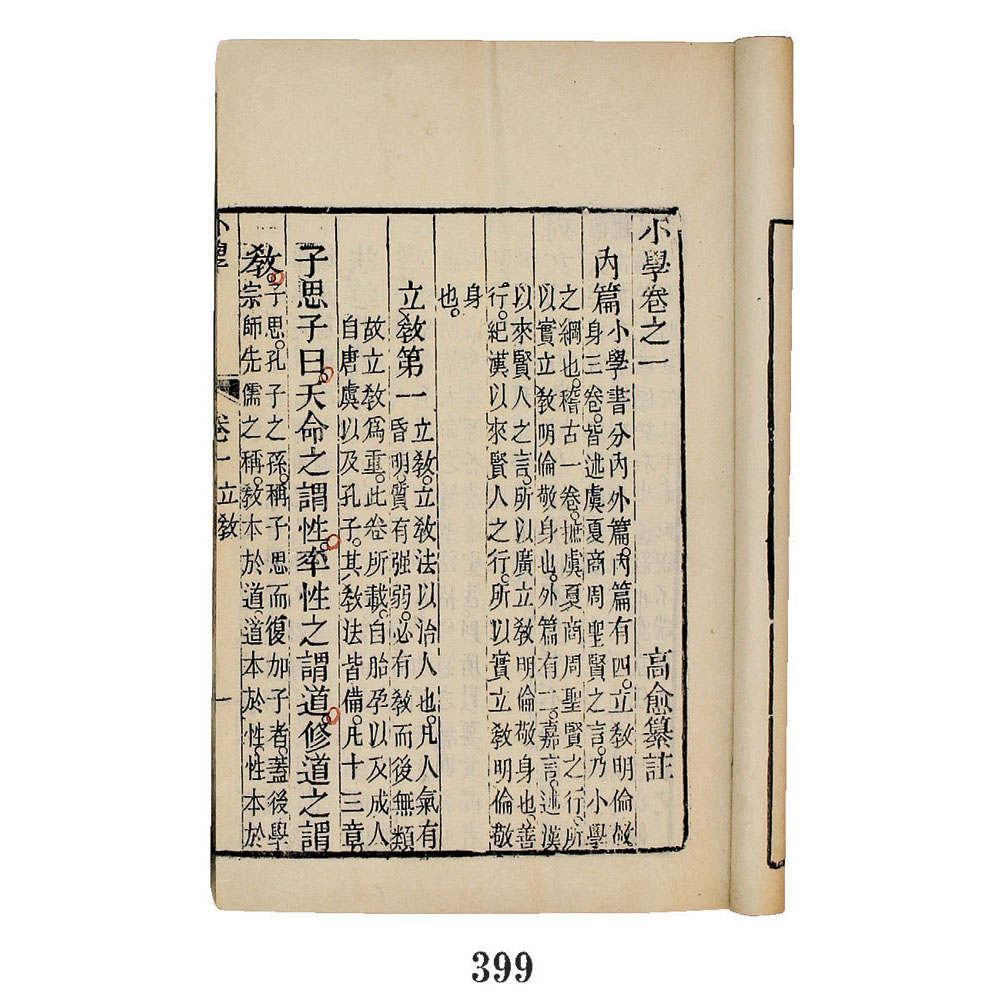 小學卷之一 高愈纂註
內篇
小學書分內外篇。內篇有四。立敎明倫敬
身三卷。皆述虞夏商周聖賢之言。乃小學
之綱也。稽古一卷。摭虞夏商周聖賢之行。所
以實立敎明倫敬身也。外篇有二。嘉言。述漢
以來賢人之言。所以廣立敎明倫敬身也。善
行。紀漢以來賢人之行。所以實立敎明倫敬
身
也。
立敎第一
立敎。立敎法以治人也。凡人氣有
昏明。質有强弱。必有敎而後無類
故立敎爲重。此卷所載。自胎孕以及成人
自唐虞以及孔子。其敎法皆備。凡十三章
子思子曰。天命之謂性。率性之謂道。修道之謂
敎。
子思。孔子之孫。稱子思而復加子者。蓋後學
宗師先儒之稱。敎本於道。道本於性。性本於
小學 卷一 立敎 一
399